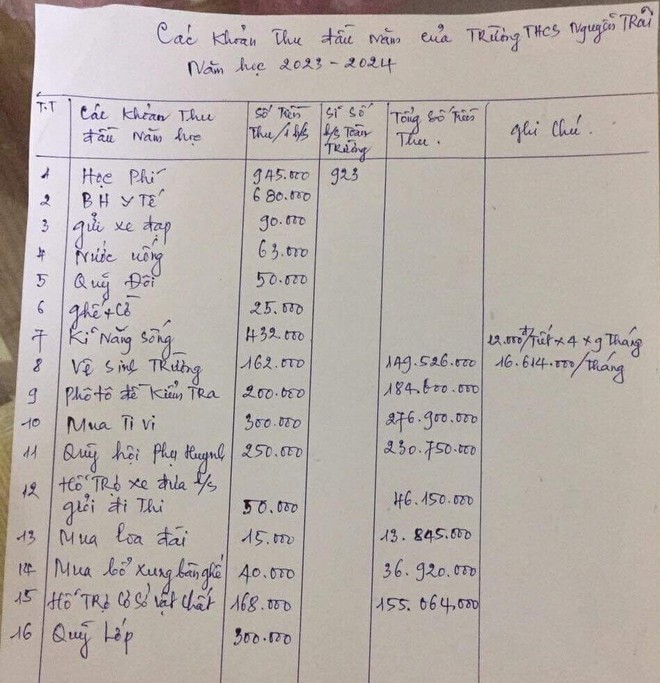 Các Khoản Thu đầu năm của Trường THCS Nguyễn Trãi
Năm học 2023 - 2024
T.T Các Khoản Thu đầu năm học Số Tiền Thu/1 h/s Sĩ Số h/s Toàn Trường Tổng Số Tiền Thu. Ghi Chú.
1 Học Phí 945.000 923
2 BH Y TẾ 680.000
3 Gửi xe đạp 90.000
4 Nước uống 63.000
5 Quỹ Đội 50.000
6 Ghế + Cờ 25.000
7 Kĩ Năng Sống 432.000 12.000đ/Tiết x 4 x 9 Tháng
8 Vệ Sinh Trường 162.000 149.526.000 16.614.000/Tháng
9 Phôtô đề Kiểm Tra 200.000 184.600.000
10 Mua Ti vi 300.000 276.900.000
11 Quỹ hội Phụ Huynh 250.000 230.750.000
12 Hỗ Trợ xe đưa h/s
giỏi đi Thi 50.000 46.150.000
13 Mua loa đài 15.000 13.845.000
14 Mua bổ xung bàn ghế 40.000 36.920.000
15 Hỗ Trợ Cơ Sở Vật Chất 168.000 155.064.000
16 Quỹ Lớp 300.000